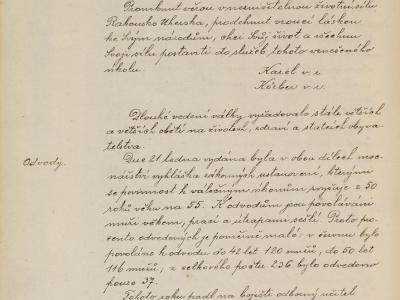 Proniknut věrou v nezničitelnou životní sílu
Rakousko Uherska, prodchnut vroucí láskou
ke Svým národům, chci Svůj život a všechnu
Svoji sílu postaviti do služeb tohoto vznešeného
úkolu.
Karel v. r.
Körber v. r.
Dlouhé vedení války vyžadovalo stále větších
a větších obětí na životech, zdraví a statcích obyva-
telstva.
Odvody.
Dne 21 ledna vydána byla v obou dílech moc-
nářství vyhláška zákonných ustanovení, kterými
se povinnost k válečným úkonům zvyšuje z 50
roků věku na 55. K odvodům jsou povoláváni
muži věkem, prací a útrapami sešlí. Proto pro-
cento odvedených je poměrně malé: v červnu bylo
povoláno k odvodu do 42 let 120 mužů, do 50 let
116 mužů, z celkového počtu 236 bylo odvedeno
pouze 37.
Tohoto roku padl na bojišti odborný učitel